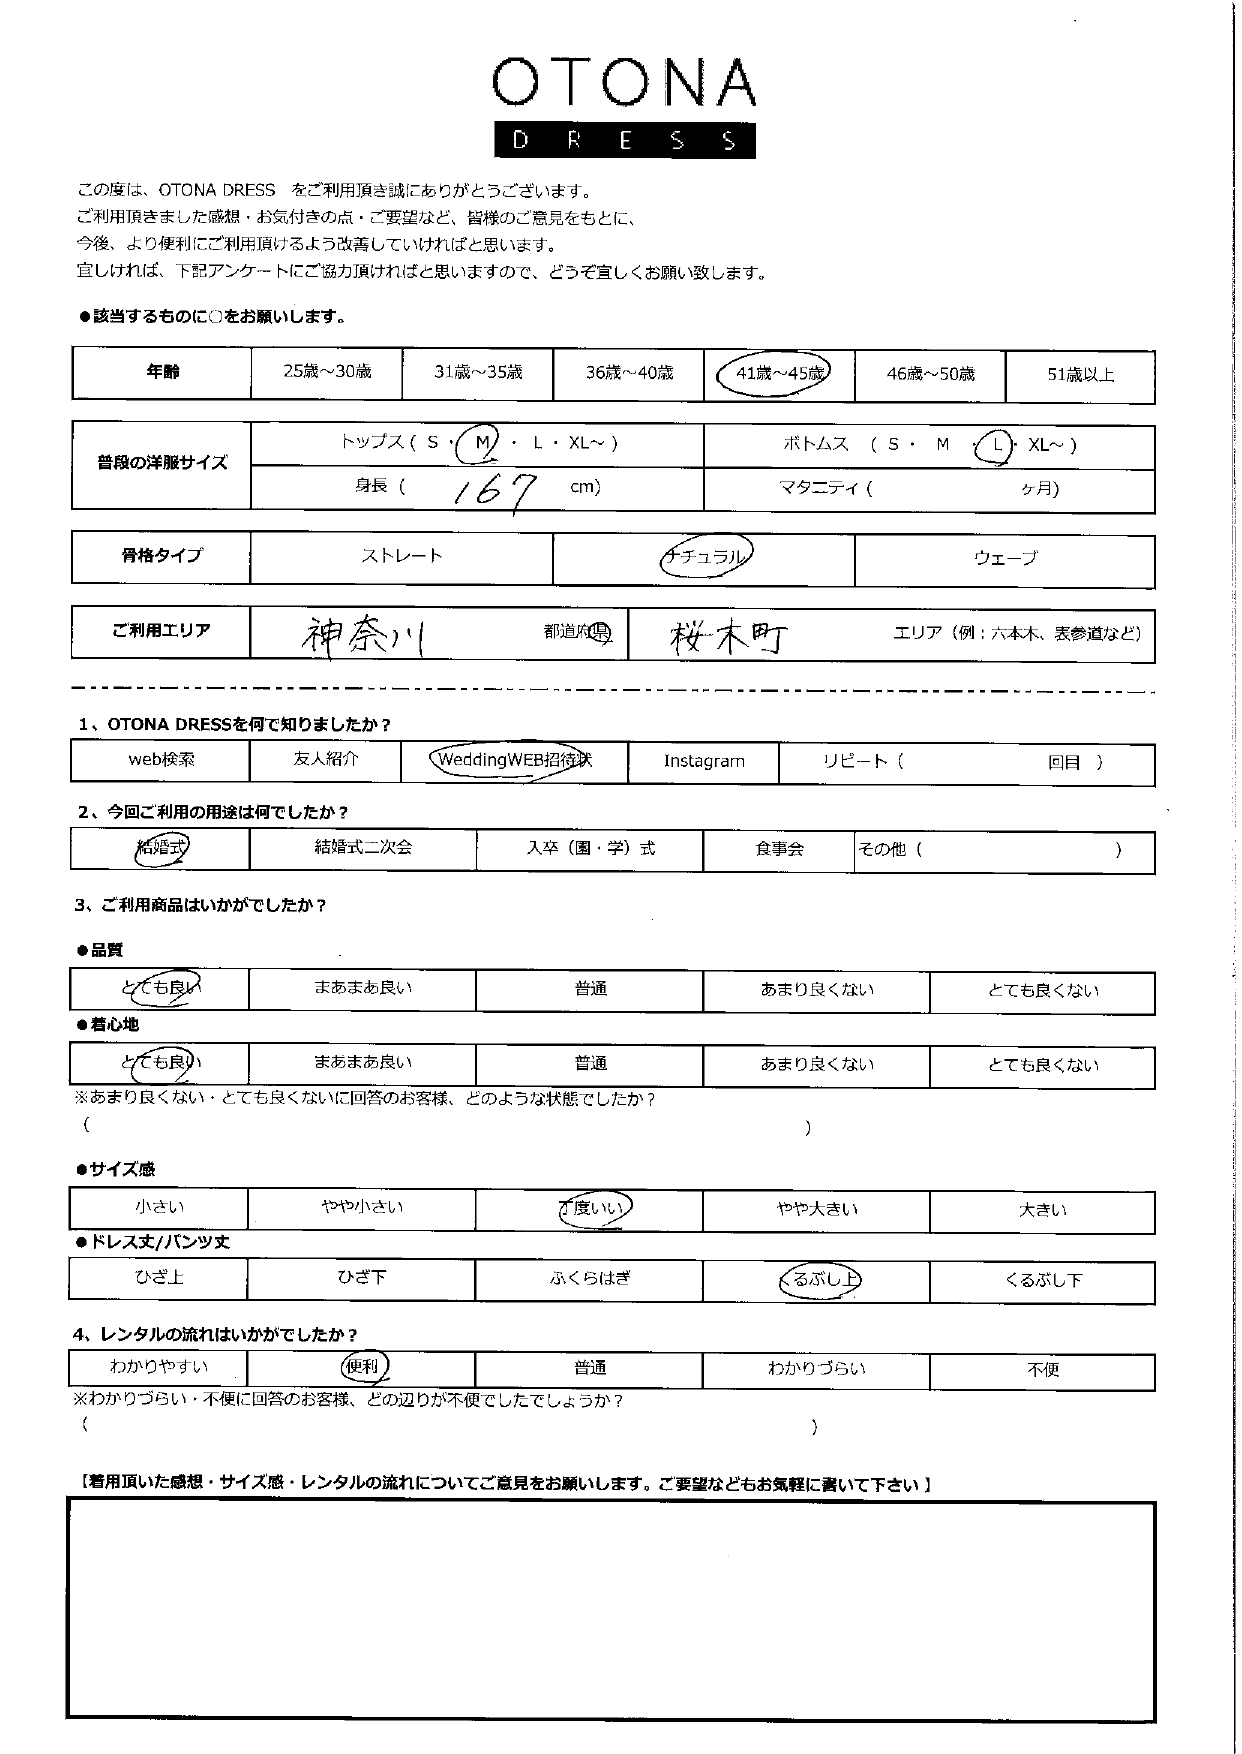 OTONA
DRESS
この度は、OTONA DRESS　をご利用頂き誠にありがとうございます。
ご利用頂きました感想・お気付きの点・ご要望など、皆様のご意見をもとに、
今後、より便利にご利用頂けるよう改善していければと思います。
宜しければ、下記アンケートにご協力頂ければと思いますので、どうぞ宜しくお願い致します。
●該当するものに○をお願いします。
年齢 25歳～30歳 31歳～35歳 36歳～40歳 41歳～45歳 46歳～50歳 51歳以上
普段の洋服サイズ トップス ( S ・ M ・ L ・ XL～ ) ボトムス ( S ・ M ・ L ・ XL～ )
身長 ( 167 cm) マタニティ ( ヶ月)
骨格タイプ ストレート ナチュラル ウェーブ
ご利用エリア 神奈川 都道府県 桜木町 エリア（例：六本木、表参道など）
1、OTONA DRESSを何で知りましたか？
web検索 友人紹介 WeddingWEB招待状 Instagram リピート（ 回目 ）
2、今回ご利用の用途は何でしたか？
結婚式 結婚式二次会 入卒（園・学）式 食事会 その他（ ）
3、ご利用商品はいかがでしたか？
●品質
とても良い まあまあ良い 普通 あまり良くない とても良くない
●着心地
とても良い まあまあ良い 普通 あまり良くない とても良くない
※あまり良くない・とても良くないに回答のお客様、どのような状態でしたか？
（ ）
●サイズ感
小さい やや小さい 丁度いい やや大きい 大きい
●ドレス丈/パンツ丈
ひざ上 ひざ下 ふくらはぎ くるぶし上 くるぶし下
4、レンタルの流れはいかがでしたか？
わかりやすい 便利 普通 わかりづらい 不便
※わかりづらい・不便に回答のお客様、どの辺りが不便でしたでしょうか？
（ ）
【着用頂いた感想・サイズ感・レンタルの流れについてご意見をお願いします。ご要望などもお気軽に書いて下さい 】